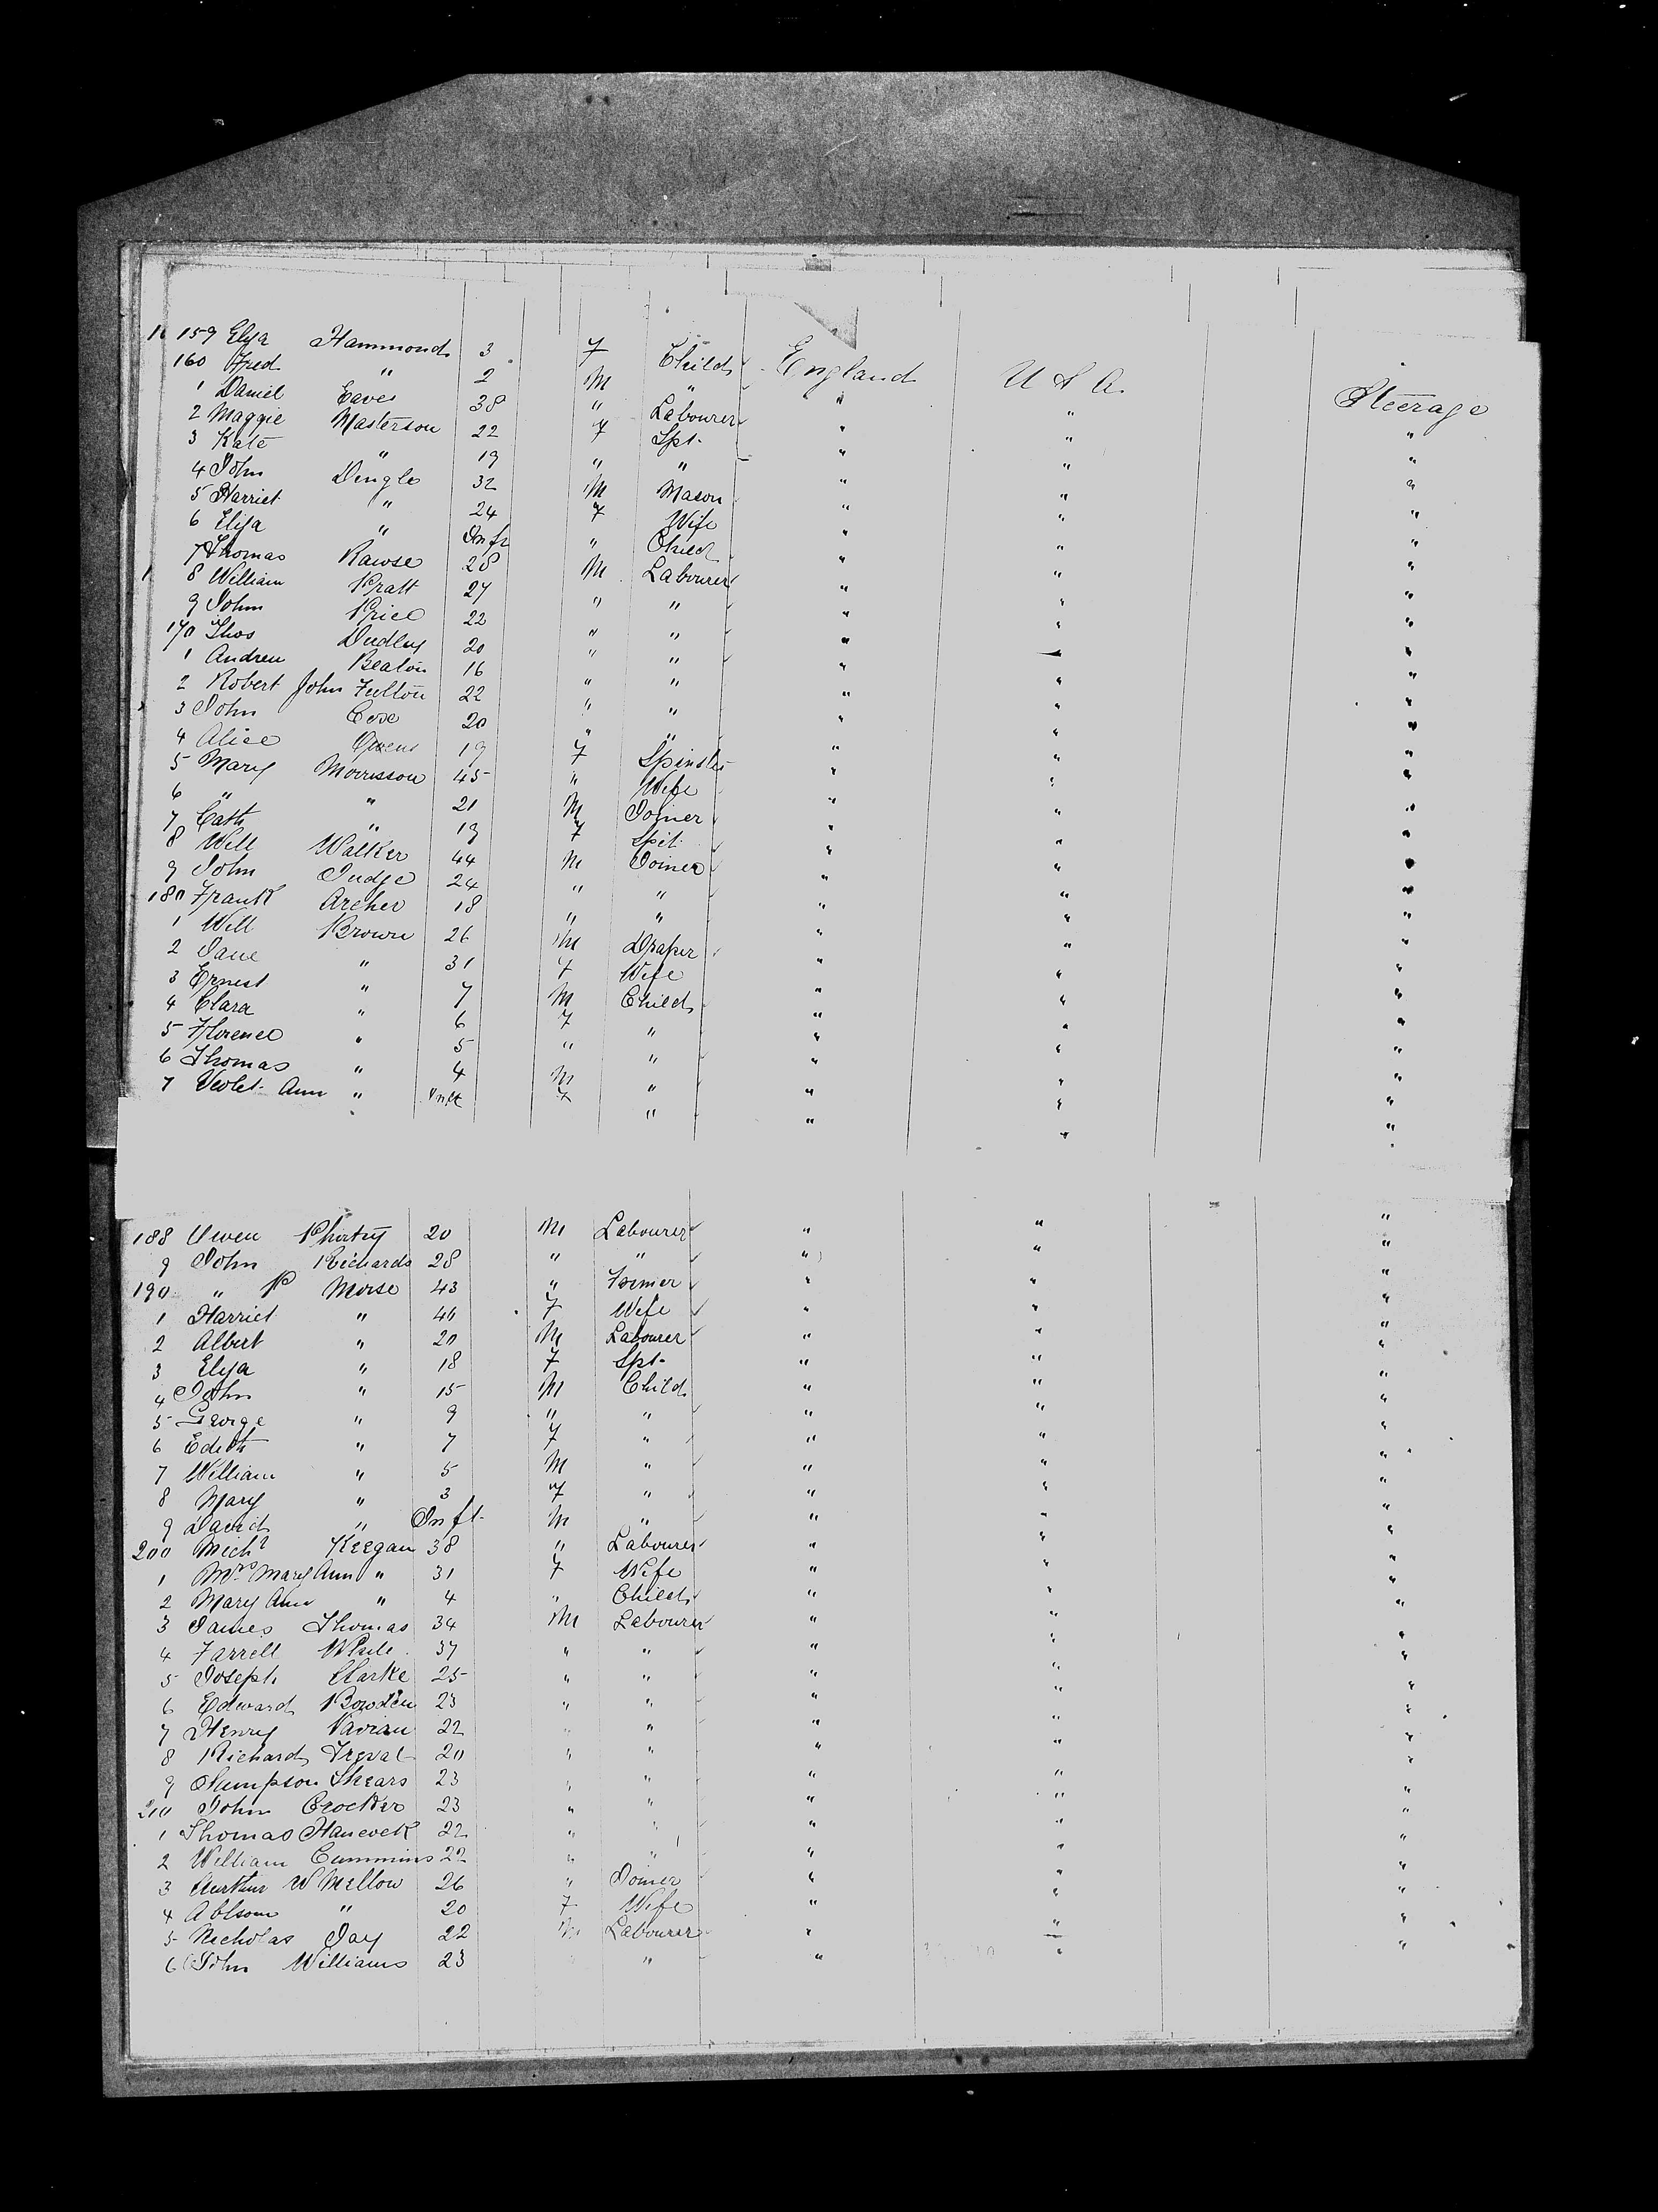 159 Eliza Hammond 3 F Child England U S A. Steerage
160 Fred " 2 M " " " "
1 Daniel Eaves 38 " Labourer " " "
2 Maggie Masterson 22 F Spt. " " "
3 Kate " 19 " " " " "
4 John Dingle 32 M Mason " " "
5 Harriet " 24 F Wife " " "
6 Eliza " Inft " Child " " "
7 Thomas Rawse 28 M Labourer " " "
8 William Pratt 27 " " " " "
9 John Price 22 " " " " "
170 Thos Dudley 20 " " " " "
1 Andrew Beaton 16 " " " " "
2 Robert John Fulton 22 " " " " "
3 John 20 " " " " "
4 Alice Owens 19 F Spinster " " "
5 Mary Morrisson 45 " Wife " " "
6 " " 21 M Joiner " " "
7 Cath " 19 F Spit. " " "
8 Will Walker 44 M Joiner " " "
9 John Judge 24 " " " " "
180 Frank Archer 18 " " " " "
1 Will Brown 26 M Draper " " "
2 Jane " 31 F Wife " " "
3 Ernest " 7 M Child " " "
4 Clara " 6 F " " " "
5 Florence " 5 " " " " "
6 Thomas " 4 M " " " "
7 Violet Ann " Inft F " " " "
188 Owen 20 M Labourer " " "
9 John Richards 28 " " " " "
190 " P Morse 43 " " " "
1 Harriet " 46 F Wife " " "
2 Albert " 20 M Labourer " " "
3 Eliza " 18 F Spt. " " "
4 John " 15 M Child " " "
5 George " 9 " " " " "
6 Edith " 7 F " " " "
7 William " 5 M " " " "
8 Mary " 3 F " " " "
9 David " Inft. M " " " "
200 Michl Keegan 38 " Labourer " " "
1 Mrs Mary Ann " 31 F Wife " " "
2 Mary Ann " 4 " Child " " "
3 James Thomas 34 M Labourer " " "
4 Farrell White 37 " " " " "
5 Joseph Clarke 25 " " " " "
6 Edward Bowden 23 " " " " "
7 Henry Vivian 22 " " " " "
8 Richard 20 " " " " "
9 Sampson Shears 23 " " " " "
210 John Crocker 23 " " " " "
1 Thomas Hancock 22 " " " " "
2 William Cummins 22 " " " " "
3 Aurthur W Mellow 26 " Joiner " " "
4 " 20 F Wife " " "
5 Nicholas Jay 22 M Labourer " " "
6 John Williams 23 " " " "